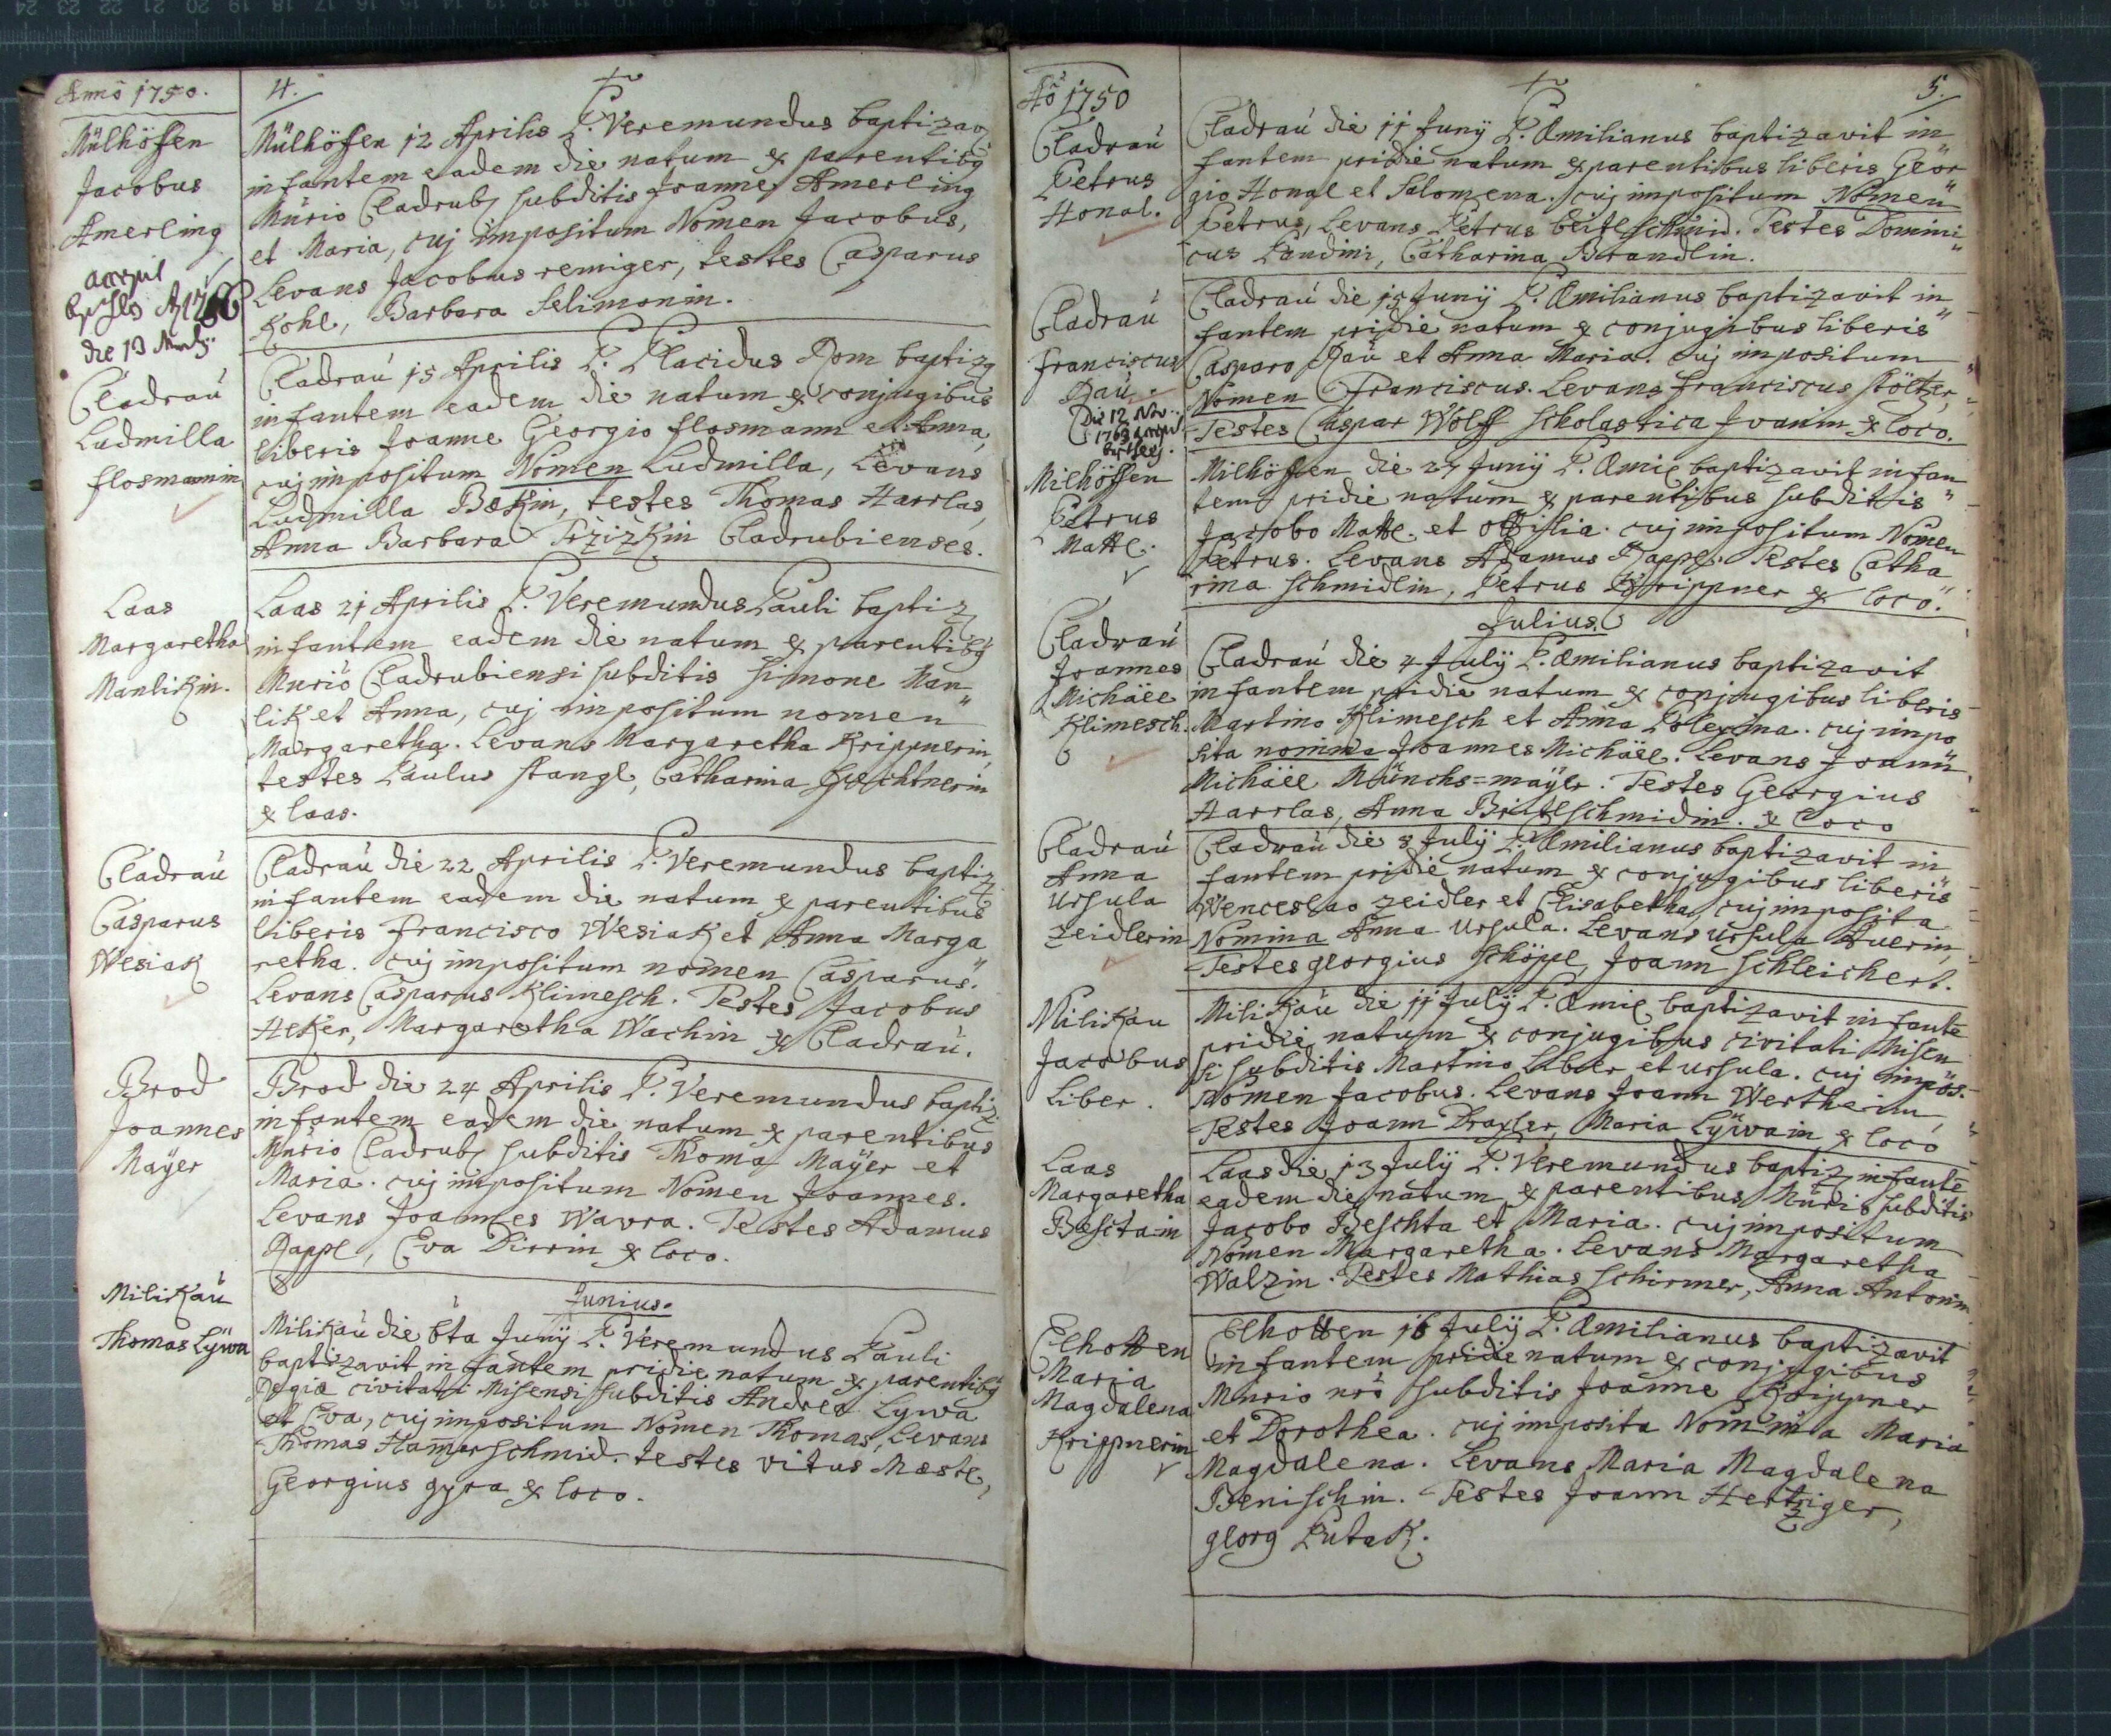 Anno 1750.
4.
Mülhöffen
Jacobus
Amerling
die 13
Mülhöffen 12 Aprilis P. Veremundus baptizav
infantem eadem die natum ex parentibg
Mürio Cladrub subditis Joanne Amerling
et Maria, cuj impositum Nomen Jacobus,
Levans Jacobus remiger, testes Casparus
Kohl, Barbara Selimonin.
Cladraú
Ludmilla
flosmannin
Cladraú 15 Aprilis P. Placidus Rom baptiz
infantem eadem die natum ex conjugibus
liberis Joanne Georgio flosmann et Anna,
cuj impositum Nomen Ludmilla, Levans
Ludmilla Bækin, testes Thomas Harrlas,
Anna Barbara Trzizkin Cladrubienses.
Laas
Margaretha
Manlikin.
Laas 21 Aprilis P. Veremundus Pauli baptiz
infantem eadem die natum ex parentibg
Murio Cladrubiensi subditis Simone Man"
lik et Anna, cuj impositum nomen
Margaretha. Levans Margaretha Krippnerin,
testes Paulus Stangl, Catharina
ex laas.
Cladraú
Casparus
Wesiak
Cladraú die 22 Aprilis P. Veremundus baptiz
infantem eadem die natum ex parentibus
liberis Francisco Wesiak et Anna Marga
retha. cuj impositum nomen Casparus."
Levans Casparus Klimesch. Testes Jacobus
Heker, Margaretha Wachin ex Cladraú.
Brod
Joannes
Mayer
Brod die 24 Aprilis P. Veremundus baptiz
infantem eadem die natum ex parentibus
Mürio Cladrub subditis Thoma Mayer et
Maria. cuj impositum Nomen Joannes.
Levans Joannes Wavra. Testes Adamus
Rappl, Eva Dirrin ex loco.
Milikaú
Thomas Lÿwa
Junius.
Milikaú die 6ta Junÿ P. Veremundus Pauli
baptizavit infantem pridie natum ex parentibg
Regiæ civitati Misensi subditis Andrea Lywa
et Eva, cuj impositum Nomen Thomas, Levans
Thomas Hamerschmid. testes vitus Mæstl,
Georgius gyra ex loco.
Aõ 1750
5.
Cladraú
Petrus
Honal.
Cladraú die 11 Junÿ P. Æmilianus baptizavit in
fantem pridie natum ex parentibus liberis Geor
gio Honal et Salomena. cuj impositum Nomen"
Petrus, Levans Petrus beitlschmid. Testes Domini
cus Landini, Catharina Brandlin.
Cladraú
Franciscus
Raú.
Die 12 Nov.
1769
Cladraú die 15 Junÿ P. Æmilianus baptizavit in
fantem pridie natum ex conjugibus liberis"
Casparo Raú et Anna Maria. cuj impositum
Nomen Franciscus. Levans Franciscus Stöltzer,
Testes Caspar Wolff Scholastica Joanin ex loco.
Milhöffen
Petrus
Mattl.
Milhöffen die 27 Junÿ P. Æmil baptizavit infan
tem pridie natum ex parentibus subditis"
Jacobo Mattl. et Ottilia. cuj impositum Nomen
Petrus. Levans Adamus Rappl. Testes Catha
rina Schmidlin, Petrus Krippner ex loco."
Julius.
Cladraú
Joannes
Michäel
Klimesch.
Cladraú die 4 Julÿ P. Æmilianus baptizavit
infantem pridie natum ex conjugibus liberis
Martino Klimesch et Anna Polexina. cuj impo
sita nomina Joannes Michäel. Levans Joann
Michäel Münchs=maÿer. Testes Georgius
Harrlas, Anna Beitlschmidin. ex loco
Cladraú
Anna
Ursula
zeidlerin
Cladraú die 8 Julÿ P. Æmilianus baptizavit in
fantem pridie natum ex conjugibus liberis
Wenceslao zeidler et Elisabetha, cuj imposita
Nomina Anna Ursula. Levans Ursula Auerin,
Testes georgius Schöppl, Joann Schleichert.
Milikau
Jacobus
Liber.
Milikaú die 11 Julÿ P. Æmil baptizavit infantē
pridie natum ex conjugibus civitati Misen
si subditis Martino Liber et ursula. cuj impos.
Nomen Jacobus. Levans Joann Wertheim
Testes Joann Draxler, Maria Lÿwain ex loco
Laas
Margaretha
Besctain
Laas die 13 Julÿ P. Veremundus baptiz infantē
eadem die natum ex parentibus Mürio subditis
Jacobo Beschta et Maria. cuj impositum
Nomen Margaretha. Levans Margaretha
Walzin. Testes Mathias Schirmer, Anna Antonin.
Elhotten
Maria
Magdalena
Krippnerin
Elhotten 16 Julÿ P. Æmilianus baptizavit
infantem pridie natum ex conjugibus
Murio nrō subditis Joanne Krippner
et Dorothea. cuj imposita Nomina Maria
Magdalena. Levans Maria Magdalena
Benischin. Testes Joann Hertziger,
georg Lutak.